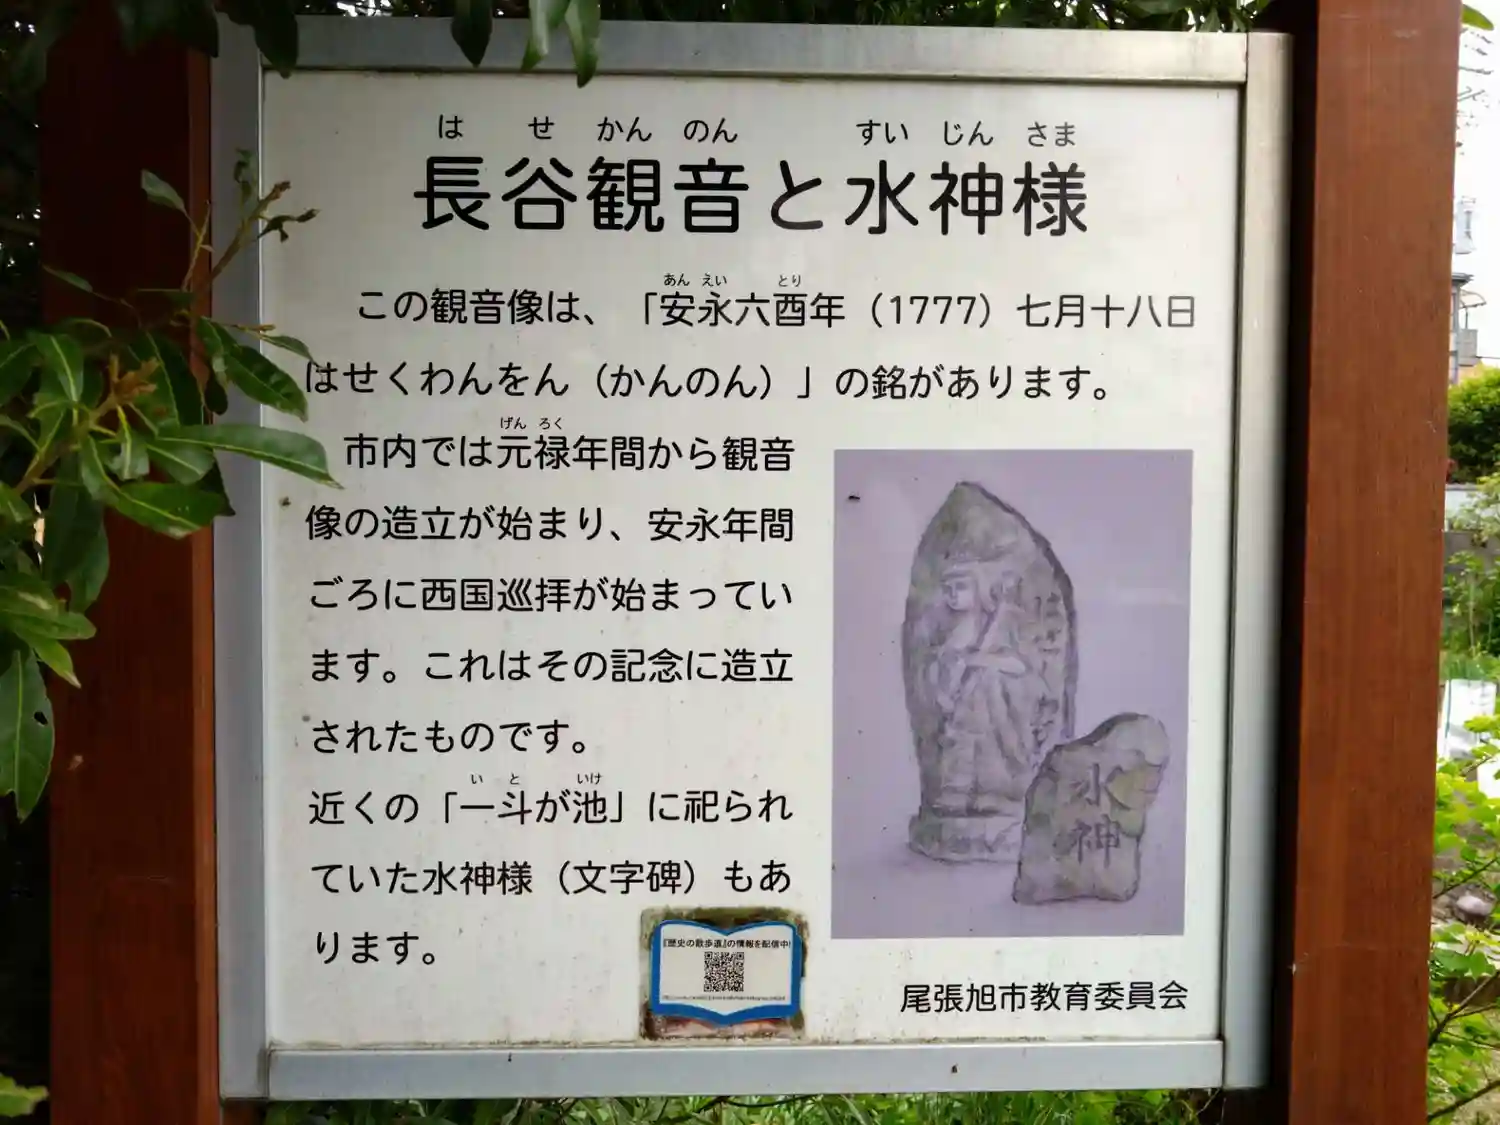 は せ かん のん すい じん さま
長谷観音と水神様
あん えい とり
この観音像は、「安永六酉年（1777）七月十八日
はせくわんをん（かんのん）」の銘があります。
げん ろく
市内では元禄年間から観音
像の造立が始まり、安永年間
ごろに西国巡拝が始まってい
ます。これはその記念に造立
されたものです。
い と いけ
近くの「一斗が池」に祀られ
ていた水神様（文字碑）もあ
ります。
水神
『歴史の散歩道』の情報を配信中!
尾張旭市教育委員会